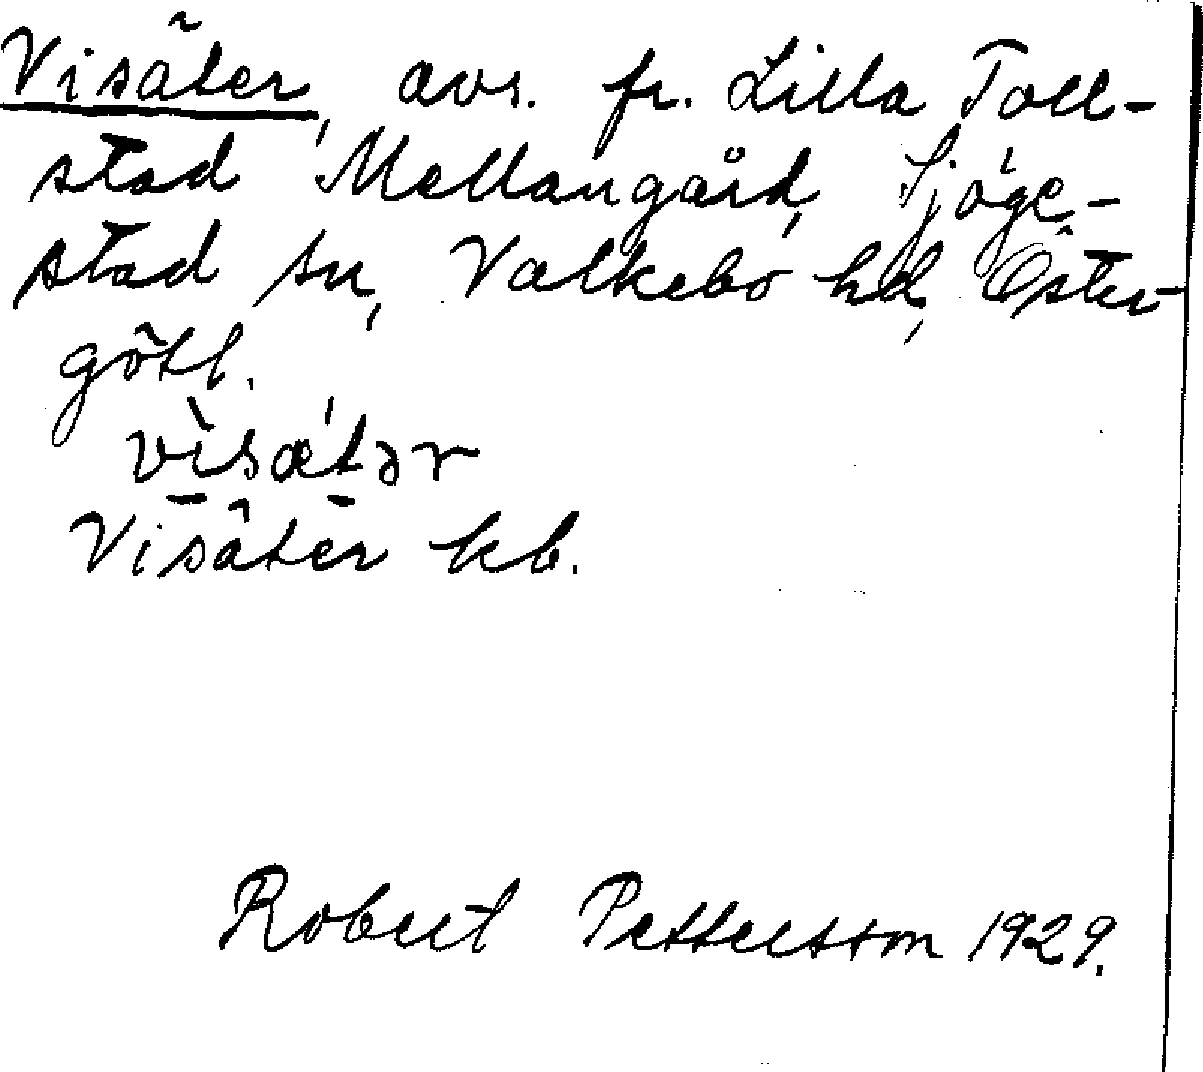 Visäter, avs. fr. Lilla Toll-
stad Mellangård, Sjöge-
stad sn, Valkebo hd, Öster-
götl.
vìsæ̀tər
Visäter kb.
Robert Pettersson 1929.